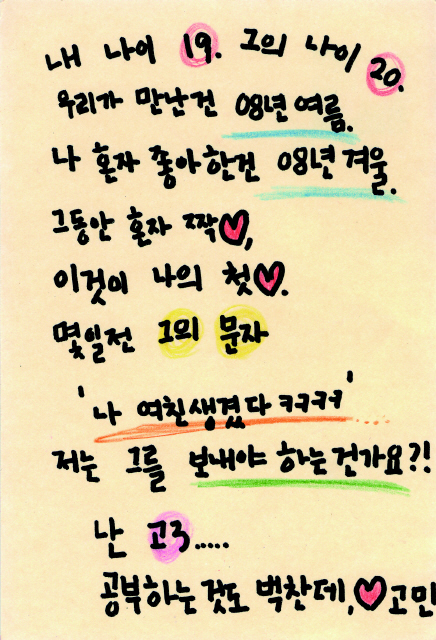 내 나이 19. 그의 나이 20.
우리가 만난건 08년 여름.
나 혼자 좋아한건 08년 겨울.
그동안 혼자 짝♥,
이것이 나의 첫♥.
몇일전 그의 문자
'나 여친생겼다 ㅋㅋㅋㅋ'
저는 그를 보내야 하는건가요?!
난 고3.....
공부하는것도 벅찬데, ♥고민